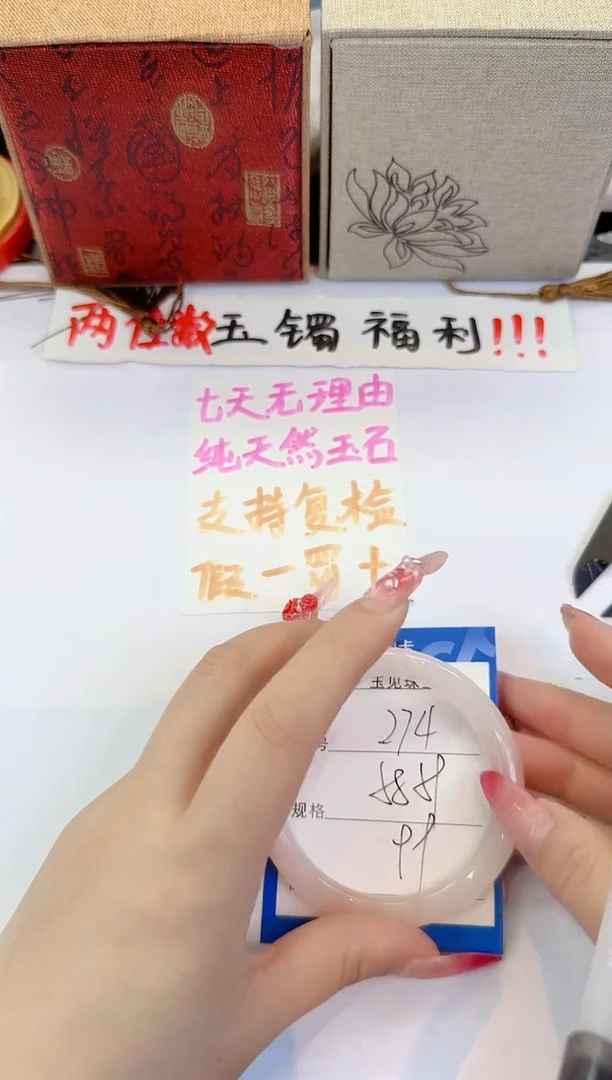 两位数玉镯福利!!!
七天无理由
纯天然玉石
支持复检
假一罚十
玉见珠
号 274
888
规格
99